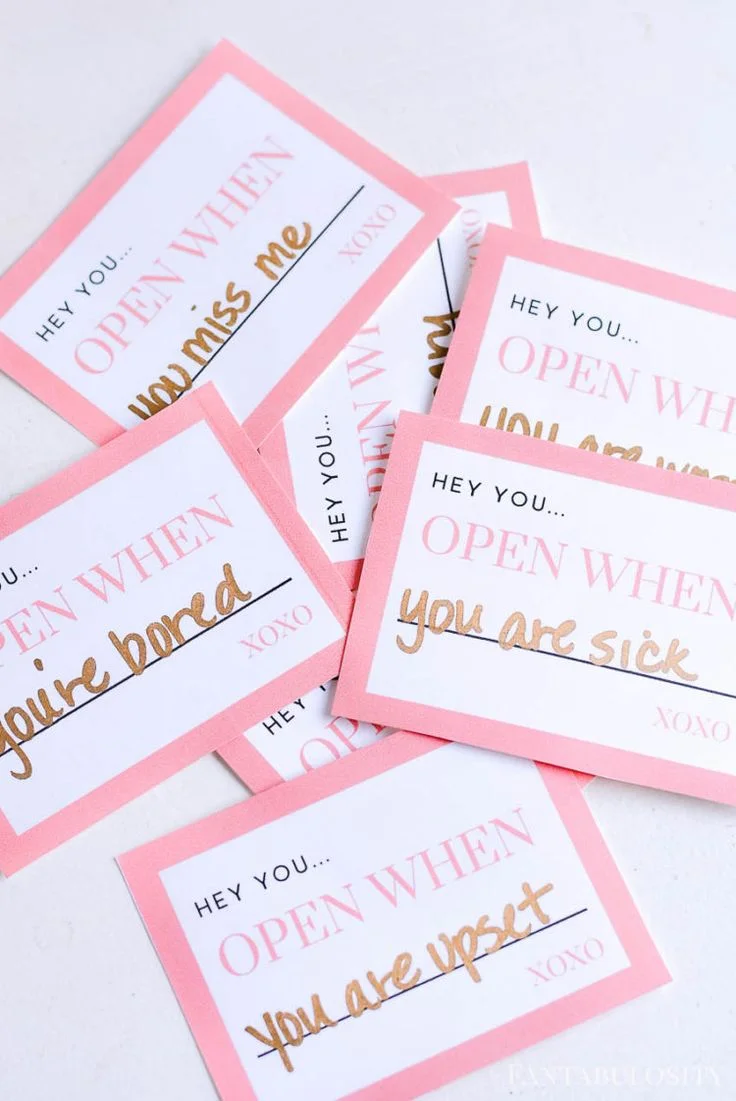 HEY YOU...
OPEN WHEN
you miss me
XOXO
HEY YOU...
OPEN
HEY YOU...
OPEN WH
you are
HEY YOU...
OPEN WHEN
you are sick
XOXO
U...
PEN WHEN
you're bored
XOXO
HEY
OP
HEY YOU...
OPEN WHEN
you are upset
XOXO
FANTABULOSITY